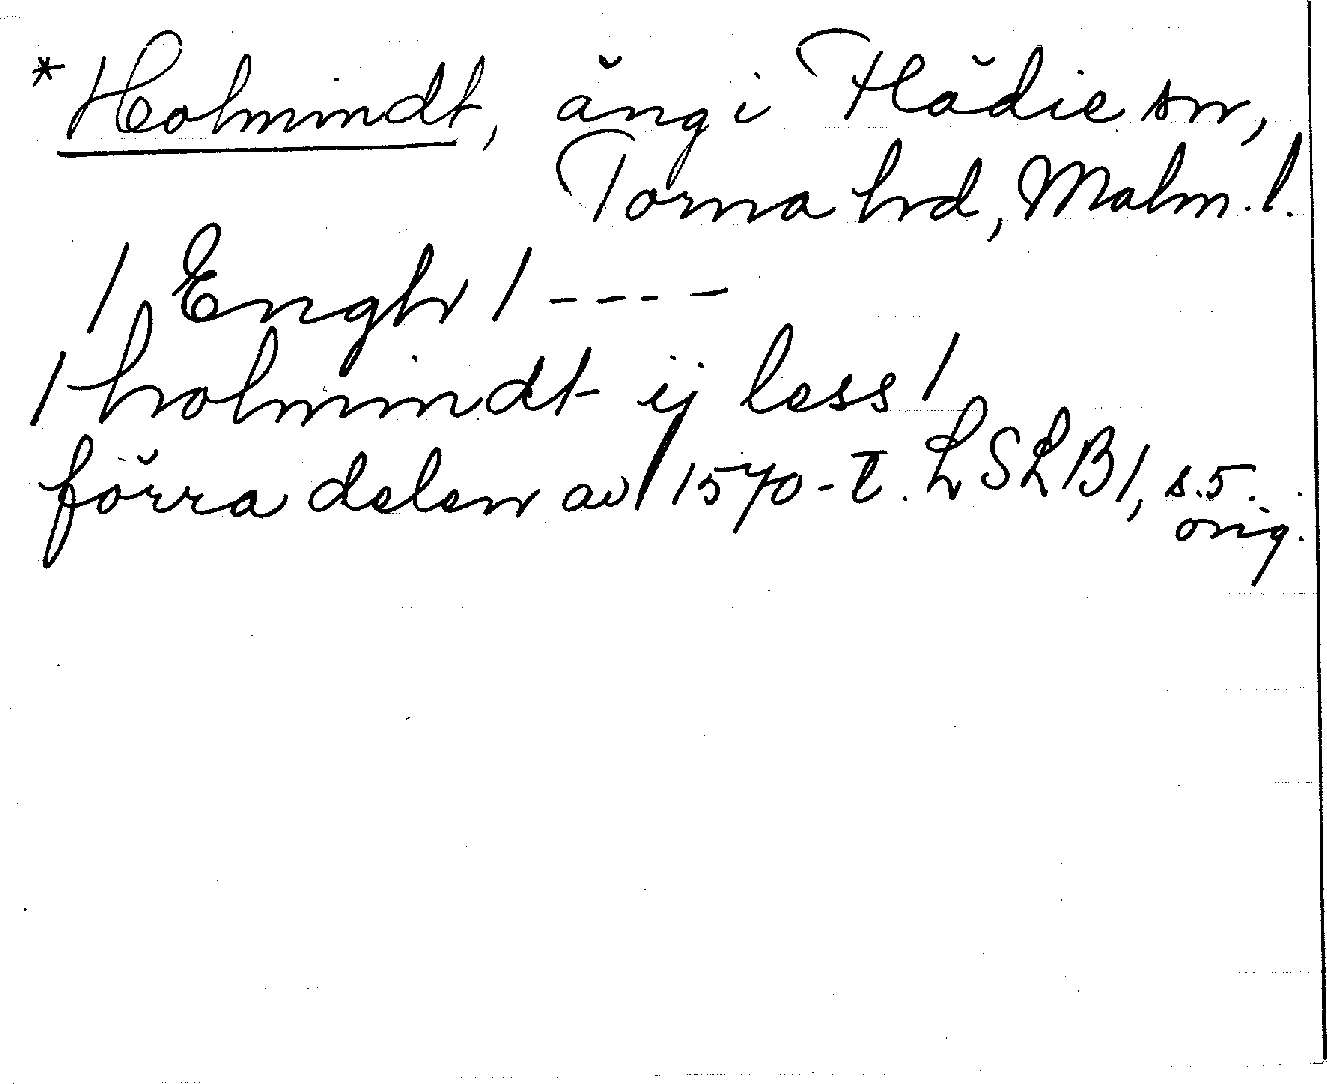 *Holmindt, äng i Flädie sn,
Torna hd, Malm. l.
/ Engh / - - - -
/ holmindt ij less /
förra delen av 1570-t. LSLB1, s.5.
orig.